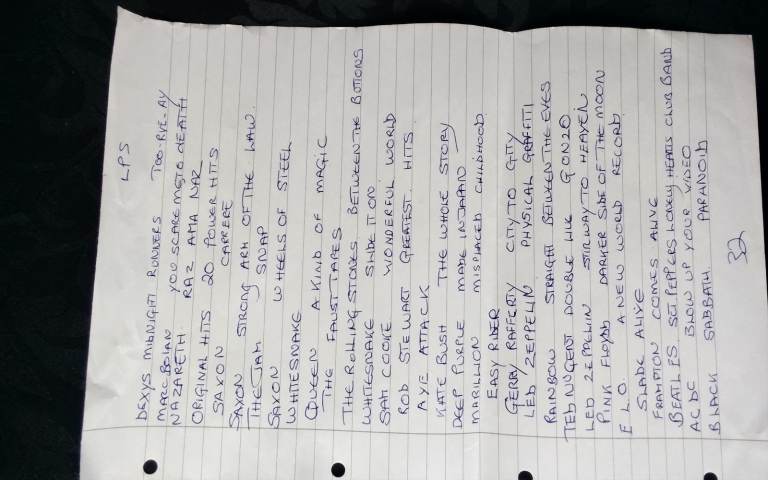 LPS
DEXYS MIDNIGHT RUNNERS TOO-RYE-AY
MARC BOLAN YOU SCARE ME TO DEATH
NAZARETH RAZ AMA NAZ
ORIGINAL HITS 20 POWER HITS
SAXON CARRERE
SAXON STRONG ARM OF THE LAW.
THE JAM SNAP
SAXON WHEELS OF STEEL
WHITESNAKE
QUEEN A KIND OF MAGIC
THE FAUST TAPES
THE ROLLING STONES BETWEEN THE BUTTONS
WHITESNAKE SLIDE IT ON
SAM COOKE WONDERFUL WORLD
ROD STEWART GREATEST HITS
AXE ATTACK
KATE BUSH THE WHOLE STORY
DEEP PURPLE MADE IN JAPAN
MARILLION MISPLACED CHILDHOOD
EASY RIDER
GERRY RAFFERTY CITY TO CITY
LED ZEPPELIN PHYSICAL GRAFFITI
RAINBOW STRAIGHT BETWEEN THE EYES
TED NUGENT DOUBLE LIVE GONZO
LED ZEPPELIN STIRWAY TO HEAVEN
PINK FLOYD DARKER SIDE OF THE MOON
E L.O. A NEW WORLD RECORD
SLADE ALIVE
FRAMPTON COMES ALIVE
BEATLES SGT. PEPPERS LONELY HEARTS CLUB BAND
AC DC BLOW UP YOUR VIDEO
BLACK SABBATH PARANOID
32